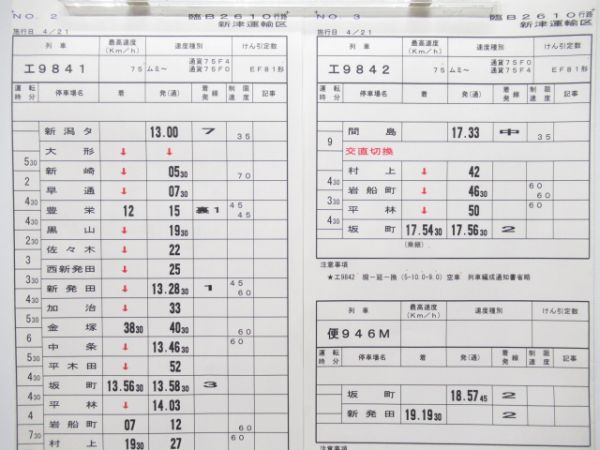 NO. 2 臨B2610行路
新津運輸区
施行日 4/21
列車 最高速度(Km/h) 速度種別 けん引定数
工9841 75 ムミ～ 通貨75F4 通貨75F0 EF81形
運転時分 停車場名 着 発(通) 着発線 制限速度 記事
新潟タ 13.00 7 35
大形 ↓ ↓
5 30
新崎 ↓ 05 30 70
2
早通 ↓ 07 30
4 30
豊栄 12 15 裏1 45 45
4 30
黒山 ↓ 19 30
佐々木 ↓ 22
3
西新発田 ↓ 25
3 30
新発田 ↓ 13.28 30 1 45 60
4 30
加治 ↓ 33
金塚 38 30 40 30 60
6
中条 ↓ 13.46 30 60
平木田 ↓ 52
4 30
坂町 13.56 30 13.58 30 3
4 30
平林 ↓ 14.03
4
岩船町 07 12 60
7 30
村上 19 30 27 60
NO. 3 臨B2610行路
新津運輸区
施行日 4/21
列車 最高速度(Km/h) 速度種別 けん引定数
工9842 75 ムミ～ 通貨75F4 通貨75F0 EF81形
運転時分 停車場名 着 発(通) 着発線 制限速度 記事
間島 17.33 中 35
9
交直切換
村上 ↓ 42
4 30
岩船町 ↓ 46 30 60
3 30
平林 ↓ 50 60
4 30
坂町 17.54 30 17.56 30 2
(乗継)
注意事項
列車 最高速度(Km/h) 速度種別 けん引定数
便946M
運転時分 停車場名 着 発(通) 着発線 制限速度 記事
坂町 18.57 45 2
新発田 19.19 30 2
注意事項